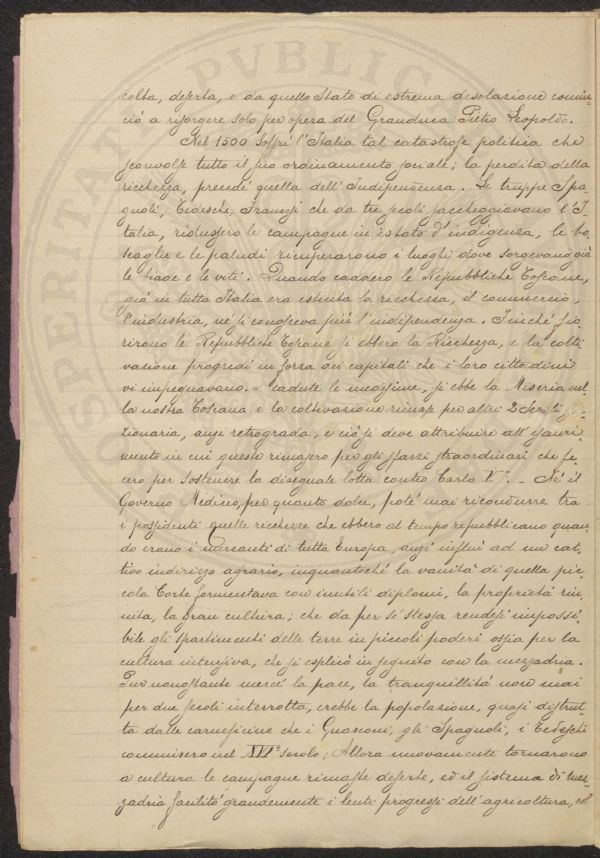 colta, deserta, e da quello Stato di estrema desolazione comin-
ciò a risorgere solo per opera del Granduca Pietro Leopoldo.
Nel 1500 soffrì l'Italia tal catastrofe politica che
sconvolse tutto il suo ordinamento sociale; la perdita della
ricchezza, precedé quella dell'Indipendenza. Le truppe Spa-
gnoli, Tedesche, Francesi che da tre secoli saccheggiavano l'I-
talia, ridussero le campagne in istato d'indigenza, le bo-
scaglie e le paludi ricuperarono i luoghi dove sorgevano già
le biade e le viti. Quando caddero le Repubbliche Toscane,
già in tutta Italia era estinta la ricchezza, il commercio,
l'industria, nè si conosceva più l'indipendenza. Finché fio-
rirono le Repubbliche Toscane si ebbero la Ricchezza, e la colti-
vazione progredì in forza dei capitali che i loro cittadini
vi impegnavano. = Cadute le medesime, si ebbe la Miseria nel
la nostra Toscana e la coltivazione rimase per altri 2 Secoli
zionaria, anzi retrograda, e ciò si deve attribuire all'esauri-
mento in cui queste rimasero per gli sforzi straordinari che fe-
cero per sostenere la diseguale lotta contro Carlo V°. - Nè il
Governo Mediceo, per quanto dolce, potè mai ricondurre tra
i possidenti quelle ricchezze che ebbero al tempo repubblicano quan-
do erano i mercanti di tutta Europa, anzi influì ad un cat-
tivo indirizzo agrario, inquantoché la vanità di quella pic-
cola Corte fomentava con inutili diplomi, la proprietà riu-
nita, la gran cultura; che da per sè stessa rendesi impossi-
bile gli spartimenti delle terre in piccoli poderi ossia per la
cultura intensiva, che si esplicò in seguito con la mezzadria.
Pur nonostante mercè la pace, la tranquillità non mai
per due secoli interrotta, crebbe la popolazione, quasi distrut-
ta dalle carneficine che i Guasconi, gli Spagnoli, i Tedeschi
commisero nel XVI° Secolo; Allora nuovamente tornarono
a cultura le campagne rimaste deserte, ed il sistema di mez-
zadria facilitò grandemente i lenti progressi dell'agricoltura, col